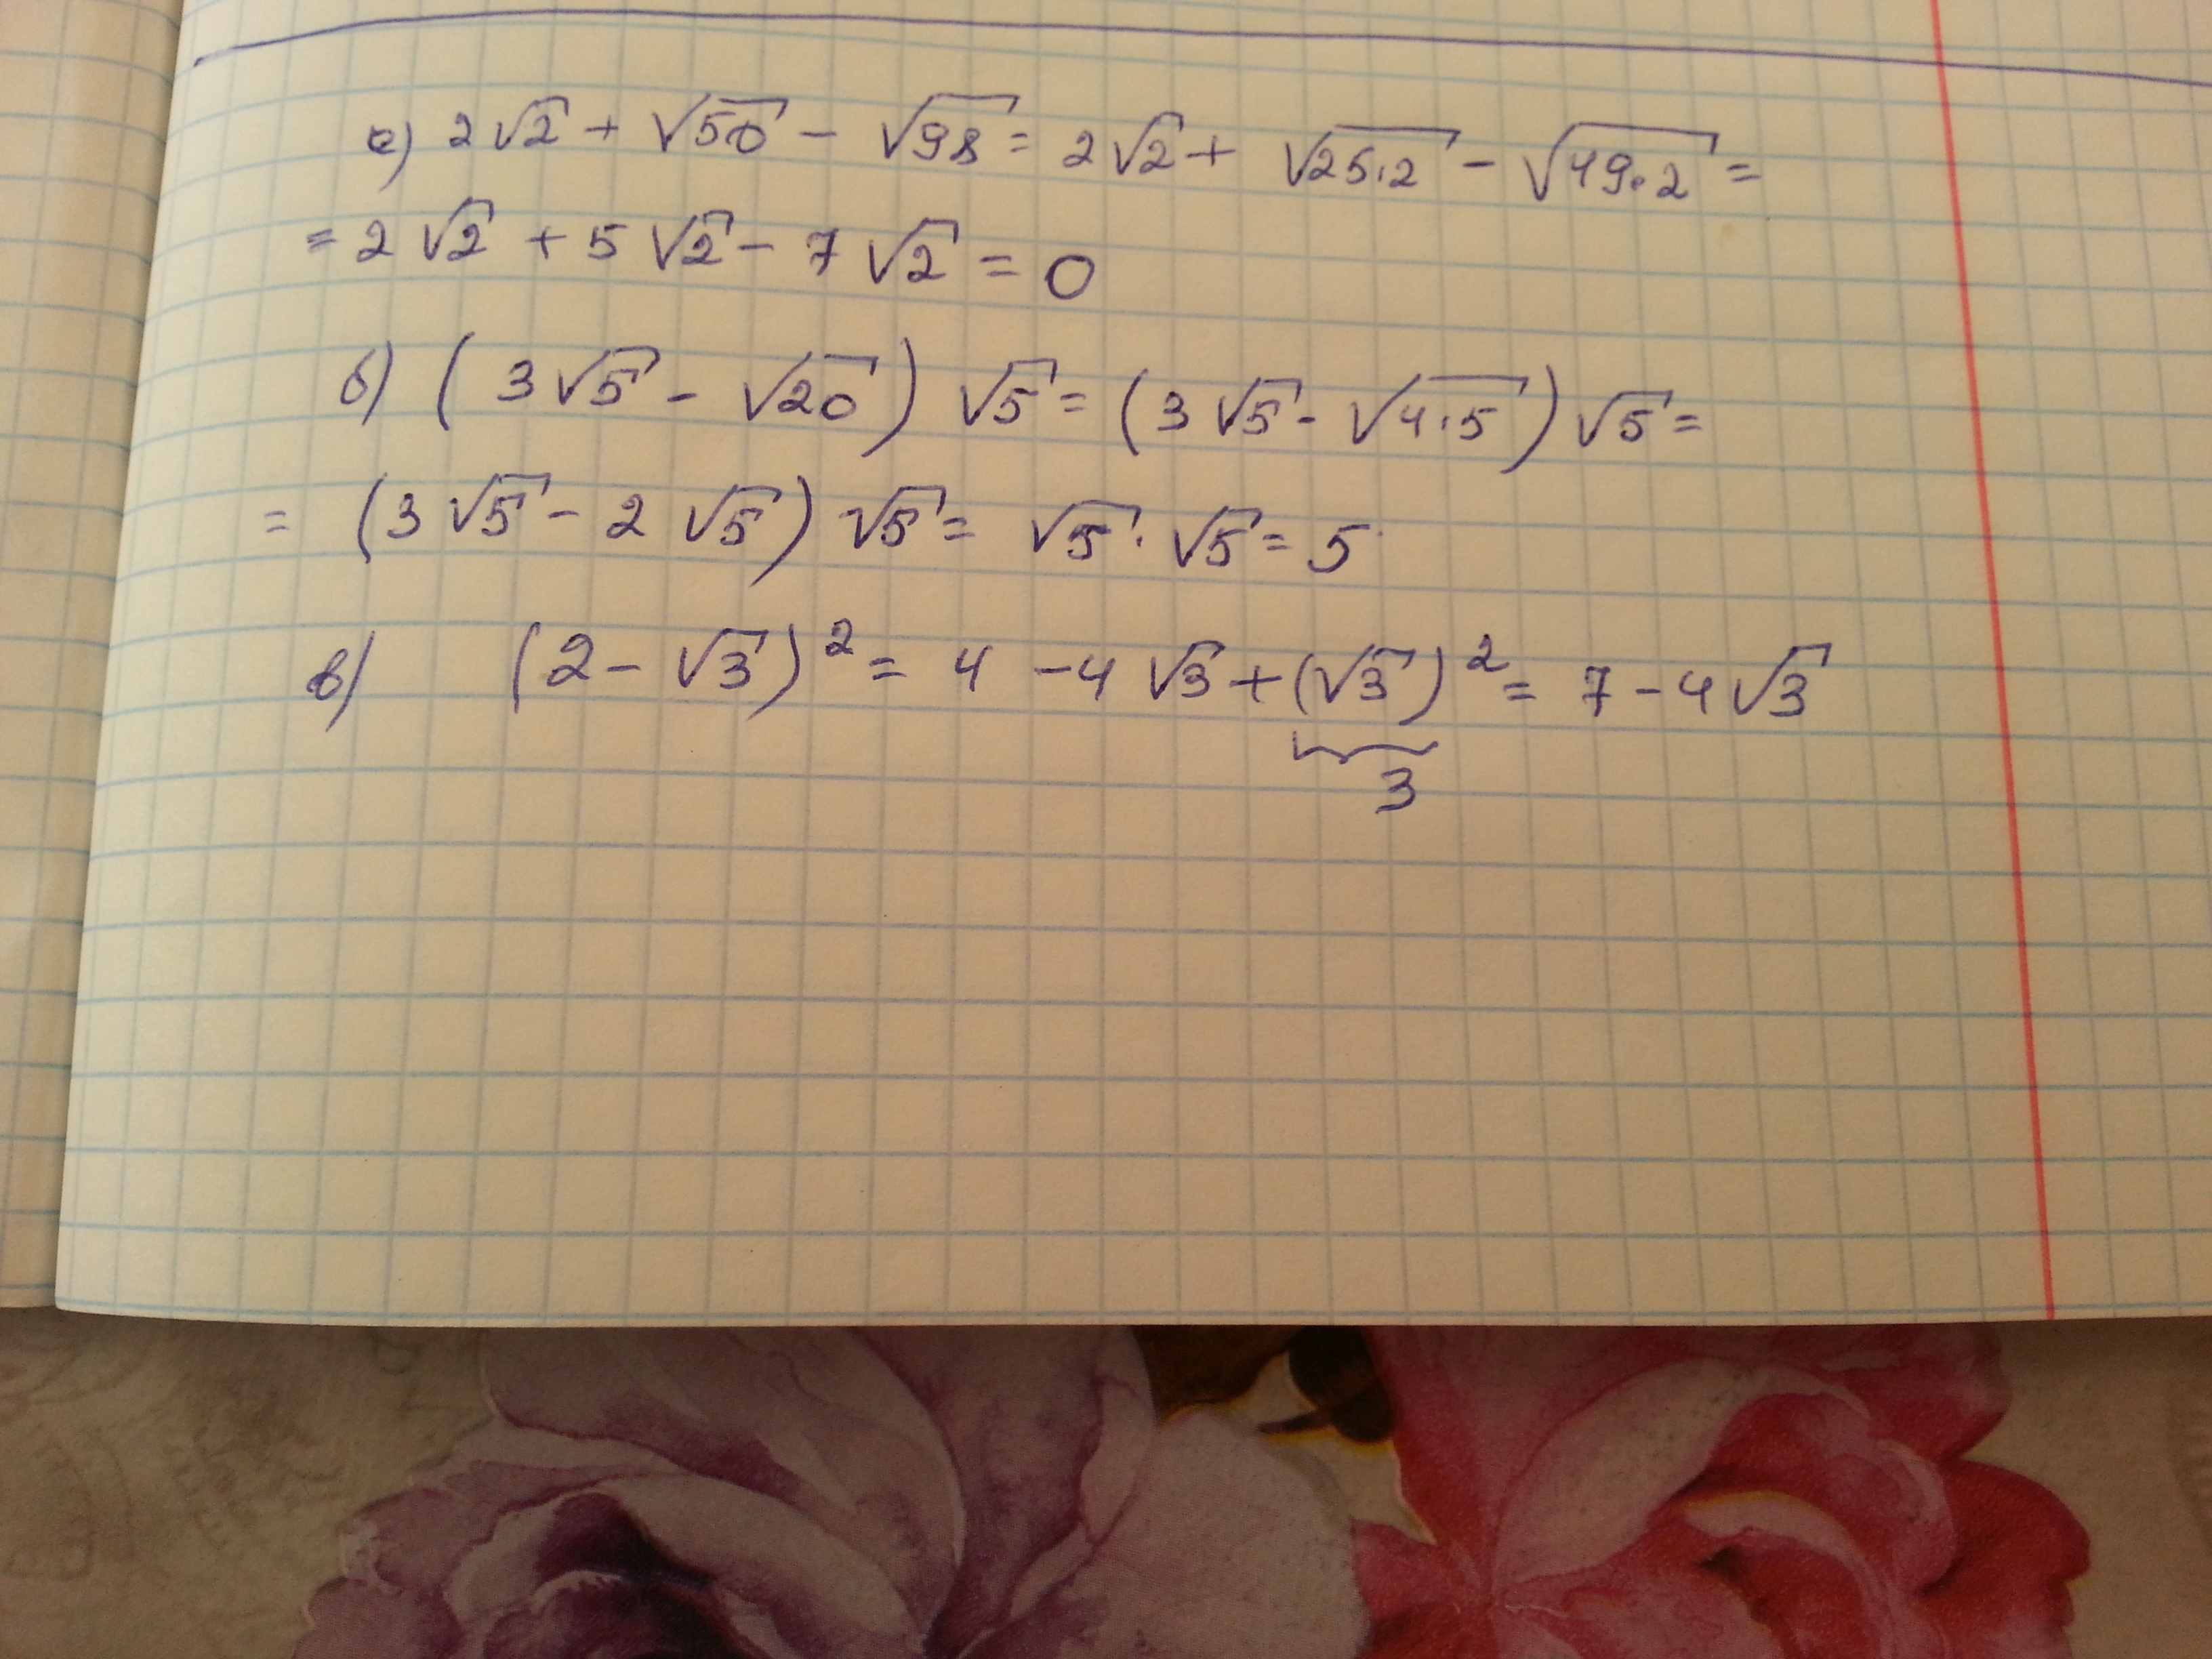 а) 2√2 + √50 - √98 = 2√2 + √25·2 - √49·2 =
= 2√2 + 5√2 - 7√2 = 0
б) (3√5 - √20) √5 = (3√5 - √4·5) √5 =
= (3√5 - 2√5) √5 = √5 · √5 = 5
в) (2 - √3)² = 4 - 4√3 + (√3)² = 7 - 4√3
3